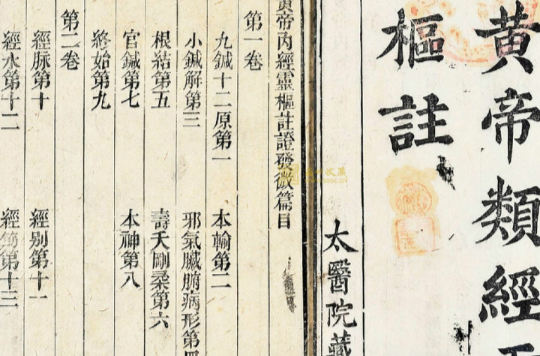 黄帝類經
樞註
太醫院藏
黃帝內經靈樞註證發微篇目
第一卷
九鍼十二原第一 本輸第二
小鍼解第三 邪氣臟腑病形第四
根結第五 壽夭剛柔第六
官鍼第七 本神第八
終始第九
第二卷
經脉第十 經别第十一
經水第十二 經筋第十三